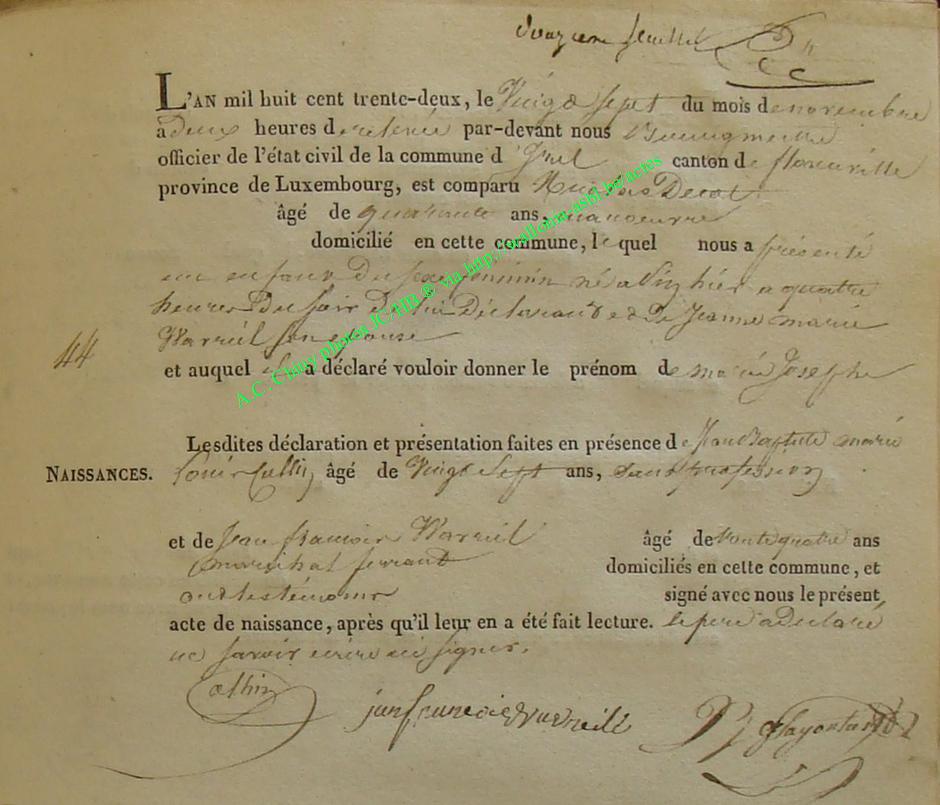 Douzieme feuillet
L'AN mil huit cent trente-deux, le Vingt Sept du mois de novembre
à deux heures de relevée par-devant nous Bourguemestre
officier de l'état civil de la commune d'Izel canton de florenville
province de Luxembourg, est comparu Nicolas Decol
âgé de quarante ans, manoeuvre
domicilié en cette commune, lequel nous a présenté
un enfant du sexe feminin né a hier a quatre
heures Du soir de lui Déclarant et De Jeanne marie
Warreil son epouse
44
et auquel il a déclaré vouloir donner le prénom de marie Josephe
Lesdites déclaration et présentation faites en présence de Jean Baptiste marie
NAISSANCES. Louis Collin âgé de Vingt Sept ans, sans profession
et de Jean francois Warreil âgé de trente quatre ans
marechal ferrant domiciliés en cette commune, et
ont les témoins signé avec nous le présent
acte de naissance, après qu'il leur en a été fait lecture. le pere a declaré
ne savoir ecrire ni signer.
jean francois
A.C. Chiny photos JC/HB ® via http://wallonia-asbl.be/actes